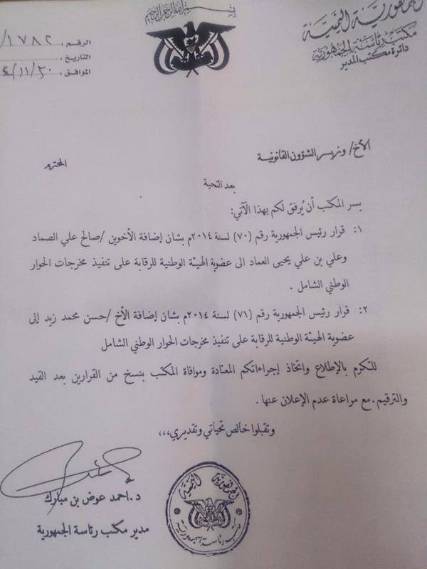 بسم الله الرحمن الرحيم
الجمهورية اليمنية
مكتب رئاسة الجمهورية
دائرة مكتب المدير
الرقم: /١٧٨٢
التاريخ:
الموافق: ٤/١١/٣٠
الأخ/ وزير الشؤون القانونية المحترم
بعد التحية
يسر المكتب أن يُرفق لكم بهذا الآتي:
١: قرار رئيس الجمهورية رقم (٧٠) لسنة ٢٠١٤م بشان إضافة الأخوين/صالح علي الصماد
وعلي بن علي يحيى العماد الى عضوية الهيئة الوطنية للرقابة على تنفيذ مخرجات الحوار
الوطني الشامل .
٢: قرار رئيس الجمهورية رقم (٧١) لسنة ٢٠١٤م بشان إضافة الأخ/حسن محمد زيد إلى
عضوية الهيئة الوطنية للرقابة على تنفيذ مخرجات الحوار الوطني الشامل
للتكرم بالإطلاع واتخاذ إجراءاتكم المعتادة وموافاة المكتب بنسخ من القرارين بعد القيد
والترقيم . مع مراعاة عدم الإعلان عنها .
وتقبلوا خالص تحياتي وتقديري،،،
د. احمد عوض بن مبارك
مدير مكتب رئاسة الجمهورية
الجمهورية اليمنية
مكتب رئاسة الجمهورية